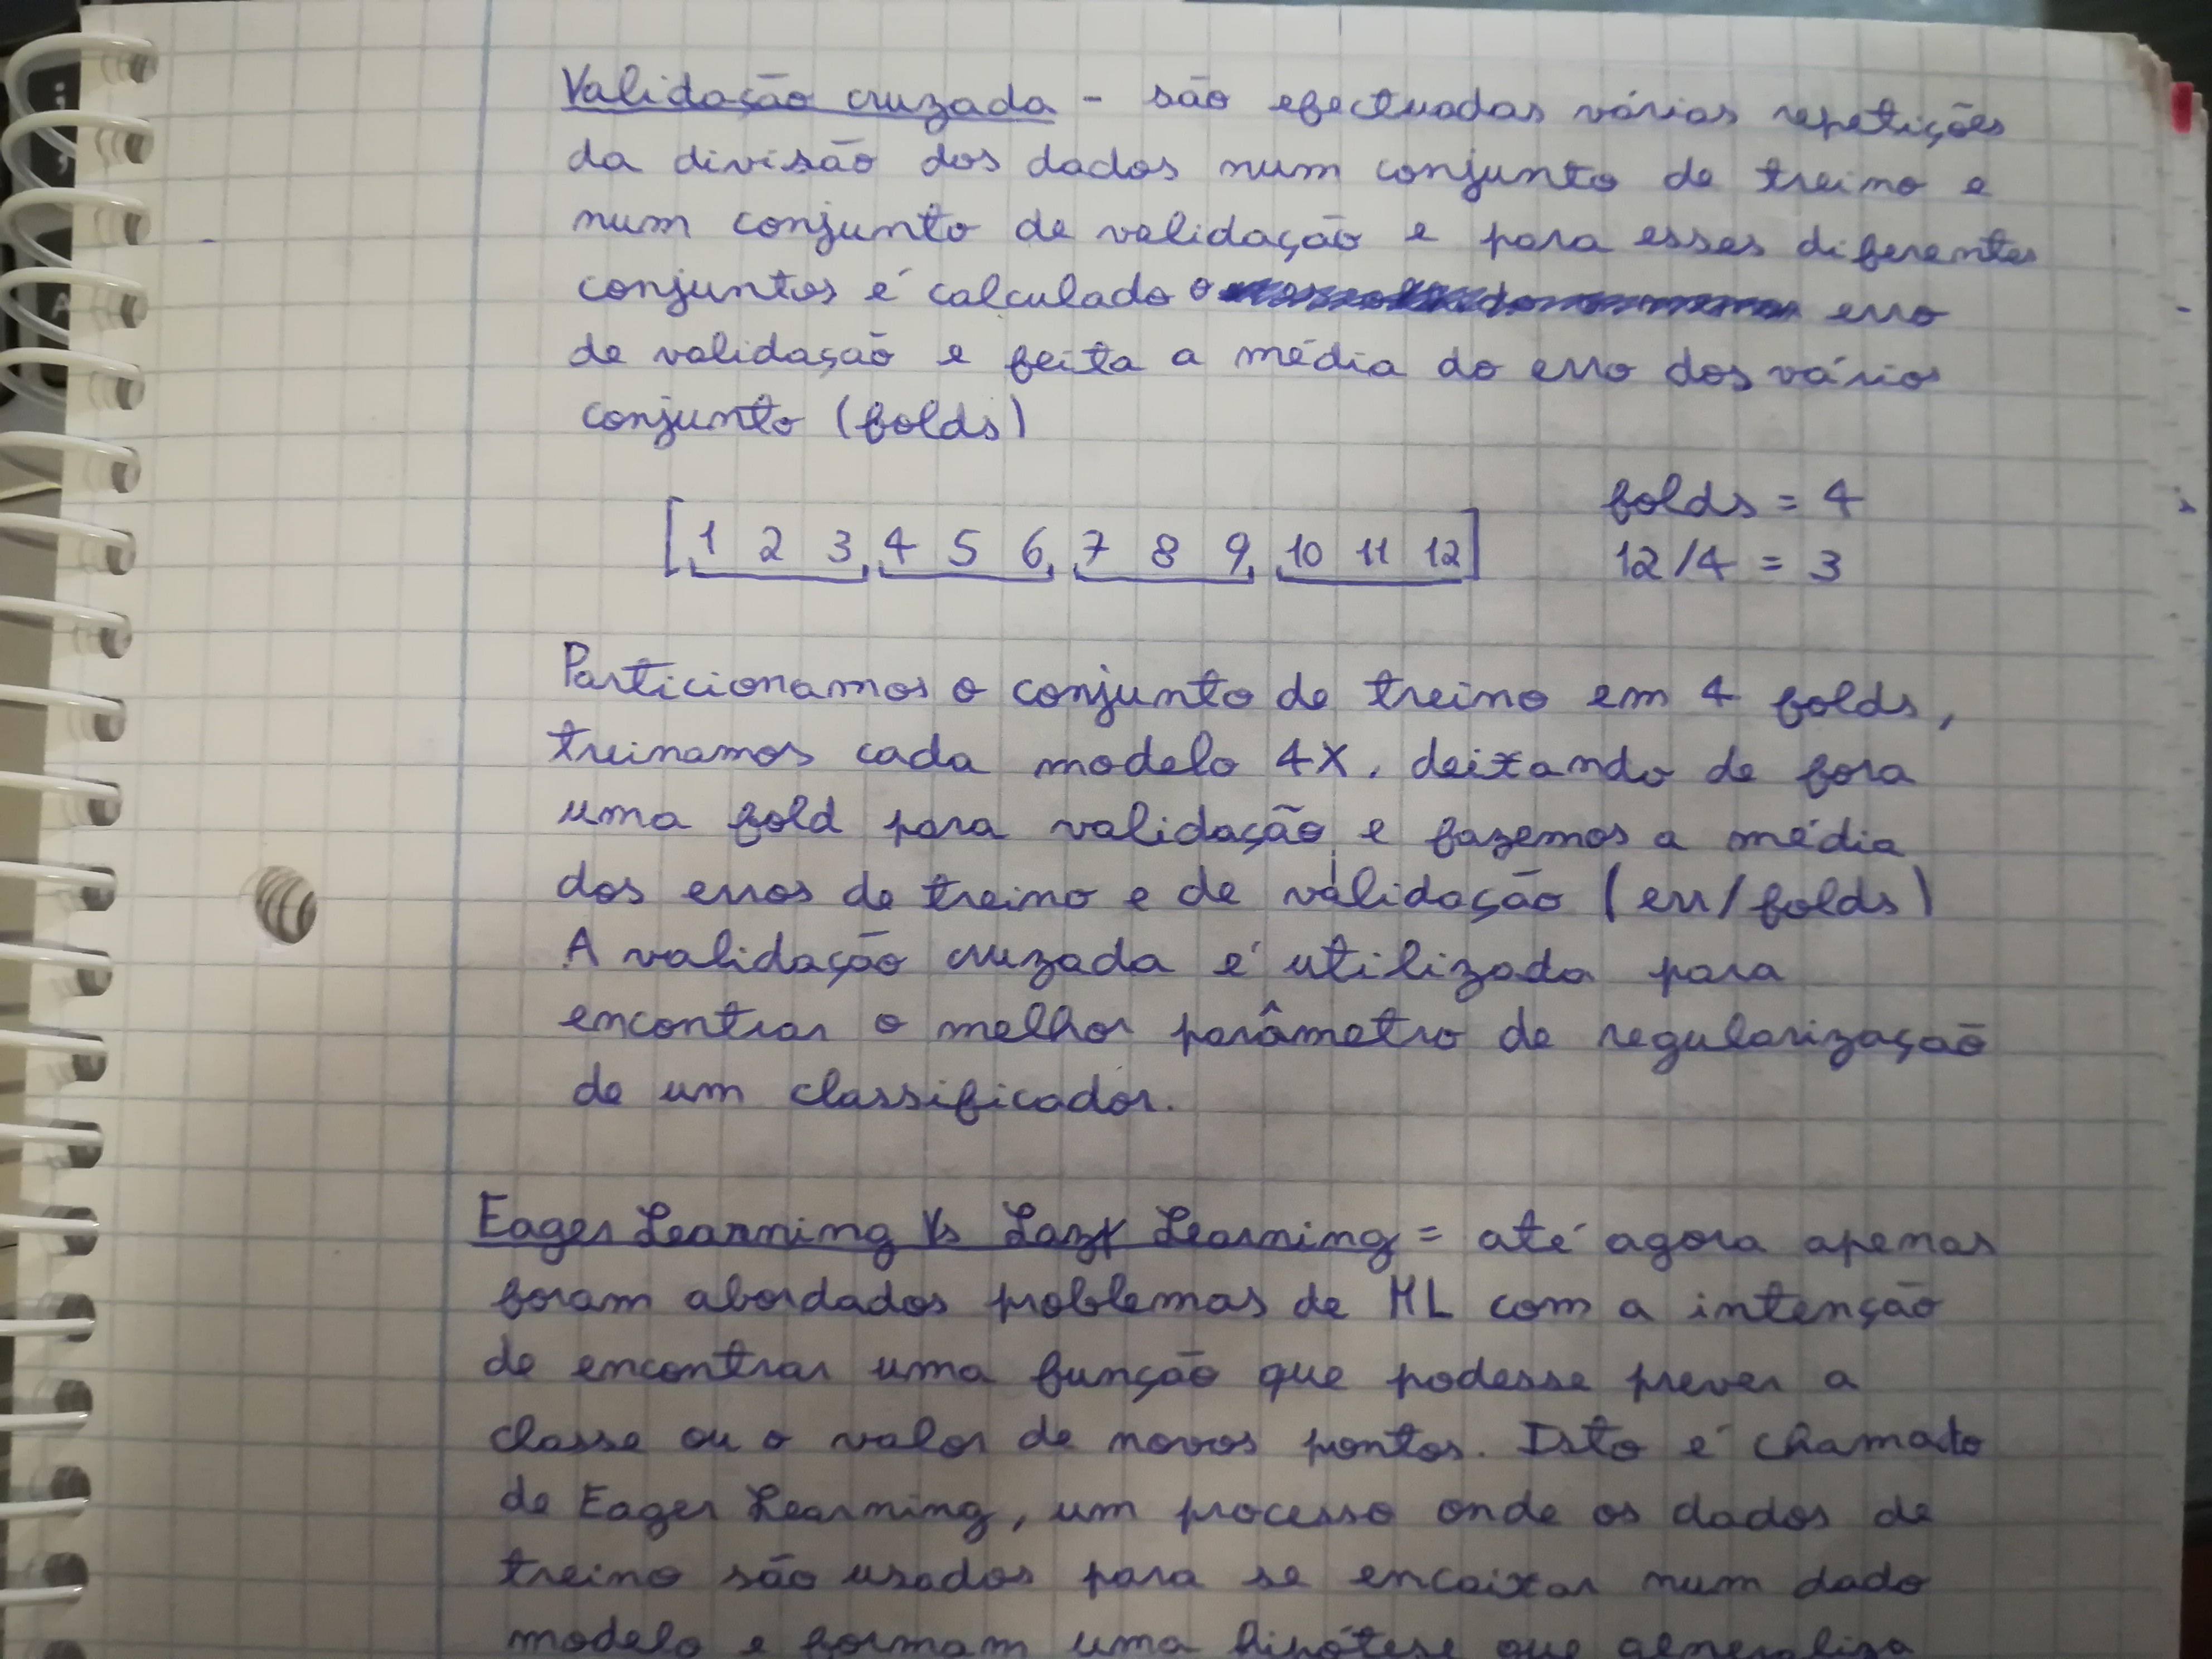 Validação cruzada - são efectuadas várias repetições
da divisão dos dados num conjunto de treino e
num conjunto de validação e para esses diferentes
conjuntos é calculado o erro
de validação e feita a média do erro dos vários
conjunto (folds)
[1 2 3 4 5 6 7 8 9 10 11 12] folds = 4
12/4 = 3
Particionamos o conjunto de treino em 4 folds,
treinamos cada modelo 4X, deixando de fora
uma fold para validação, e fazemos a média
dos erros de treino e de validação (err/folds)
A validação cruzada é utilizada para
encontrar o melhor parâmetro de regularização
de um classificador.
Eager Learning Vs Lazy Learning = até agora apenas
foram abordados problemas de ML com a intenção
de encontrar uma função que podesse prever a
classe ou o valor de novos pontos. Isto é chamado
de Eager Learning, um processo onde os dados de
treino são usados para se encaixar num dado
modelo e formam uma hipótese que generaliza